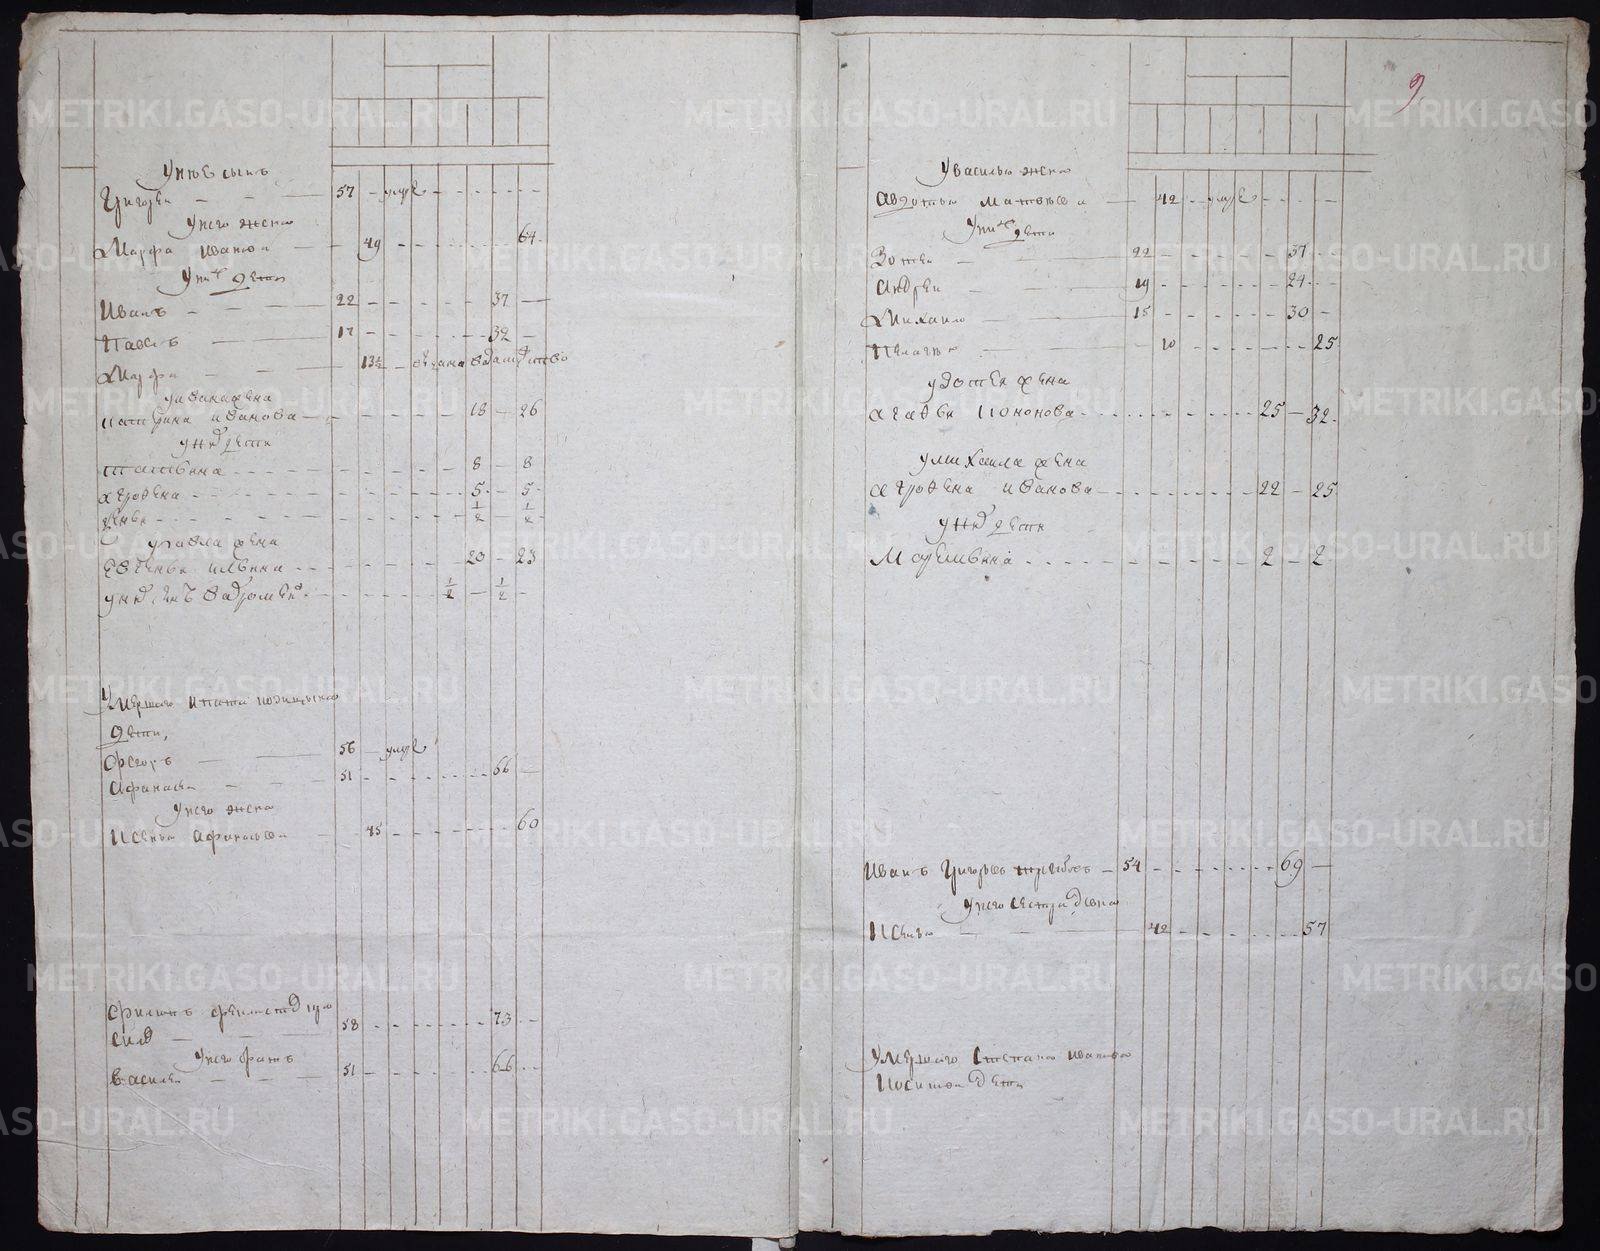 у него сынъ
Григорей 57 умре
у него жена
Марфа Иванова 49 64
у нихъ дети
Иванъ 22 37
Павелъ 17 32
Марфа 13½ отдана в замужство
у Ивана жена
Катерина Иванова 18 26
у них дети
Татьяна 8 8
Агрофена 5 5
½ ½
у Павла жена
Евгенья Ильина 20 23
у них сынъ Варфоломей ½ ½
Умершаго Ипата Козицына
дети,
Федоръ 56 умре
Афанасей 51 66
у него жена
Ксенья Афанасьева 45 60
Филипъ
58 73
у него братъ
Василей 51 66
9
У Василья жена
Авдотья Матвеева 42 умре
у них дети
Зотей 22 37
Андрей 19 24
Михайло 15 30
Пелагея 10 25
у Зотея жена
Агафья Кононова 25 32
у Михаила жена
Агрофена Иванова 22 25
у них дети
Моремьяна 2 2
Иванъ Григорьевъ 54 69
у него сестра девка
Ксенья 42 57
Умершаго Степана Иванова
дети
METRIKI.GASO-URAL.RU